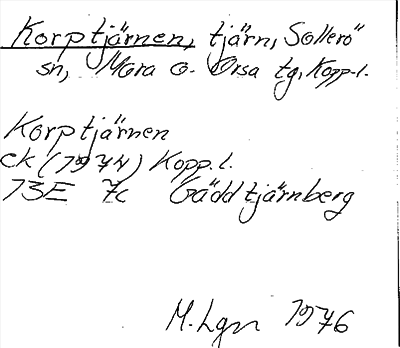 Korptjärnen, tjärn, Sollerö
sn, Mora o. Orsa tg, Kopp. l.
Korptjärnen
ck (1974) Kopp. l.
13E 7c Gäddtjärnberg
M. Lgn 1976